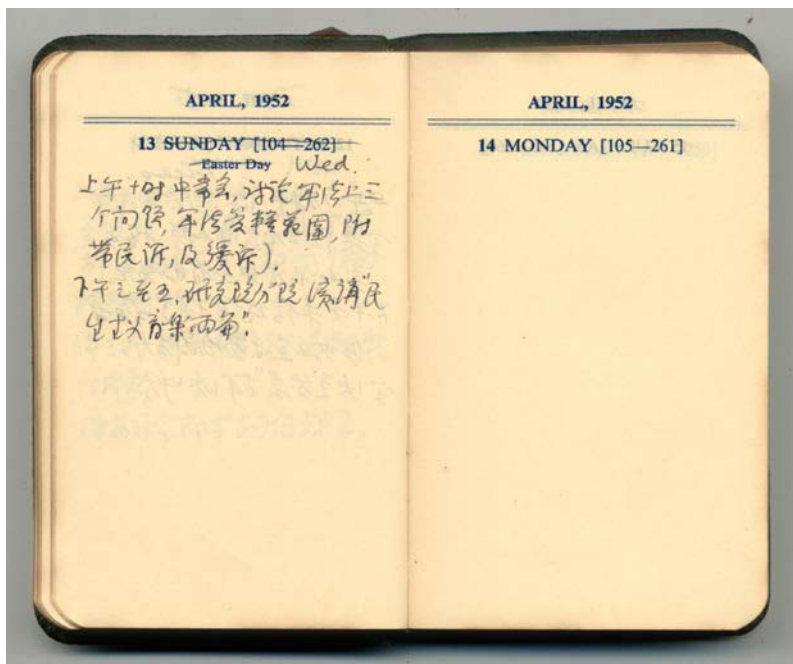 APRIL, 1952
13 SUNDAY [104—262]
Easter Day Wed.
上午十时中常会,讨论军法上三
个问题,军法受轄范圍,附
带民诉,及缓诉).
下午三至五,研究院分院演講"民
生主义育樂两篇".
APRIL, 1952
14 MONDAY [105—261]